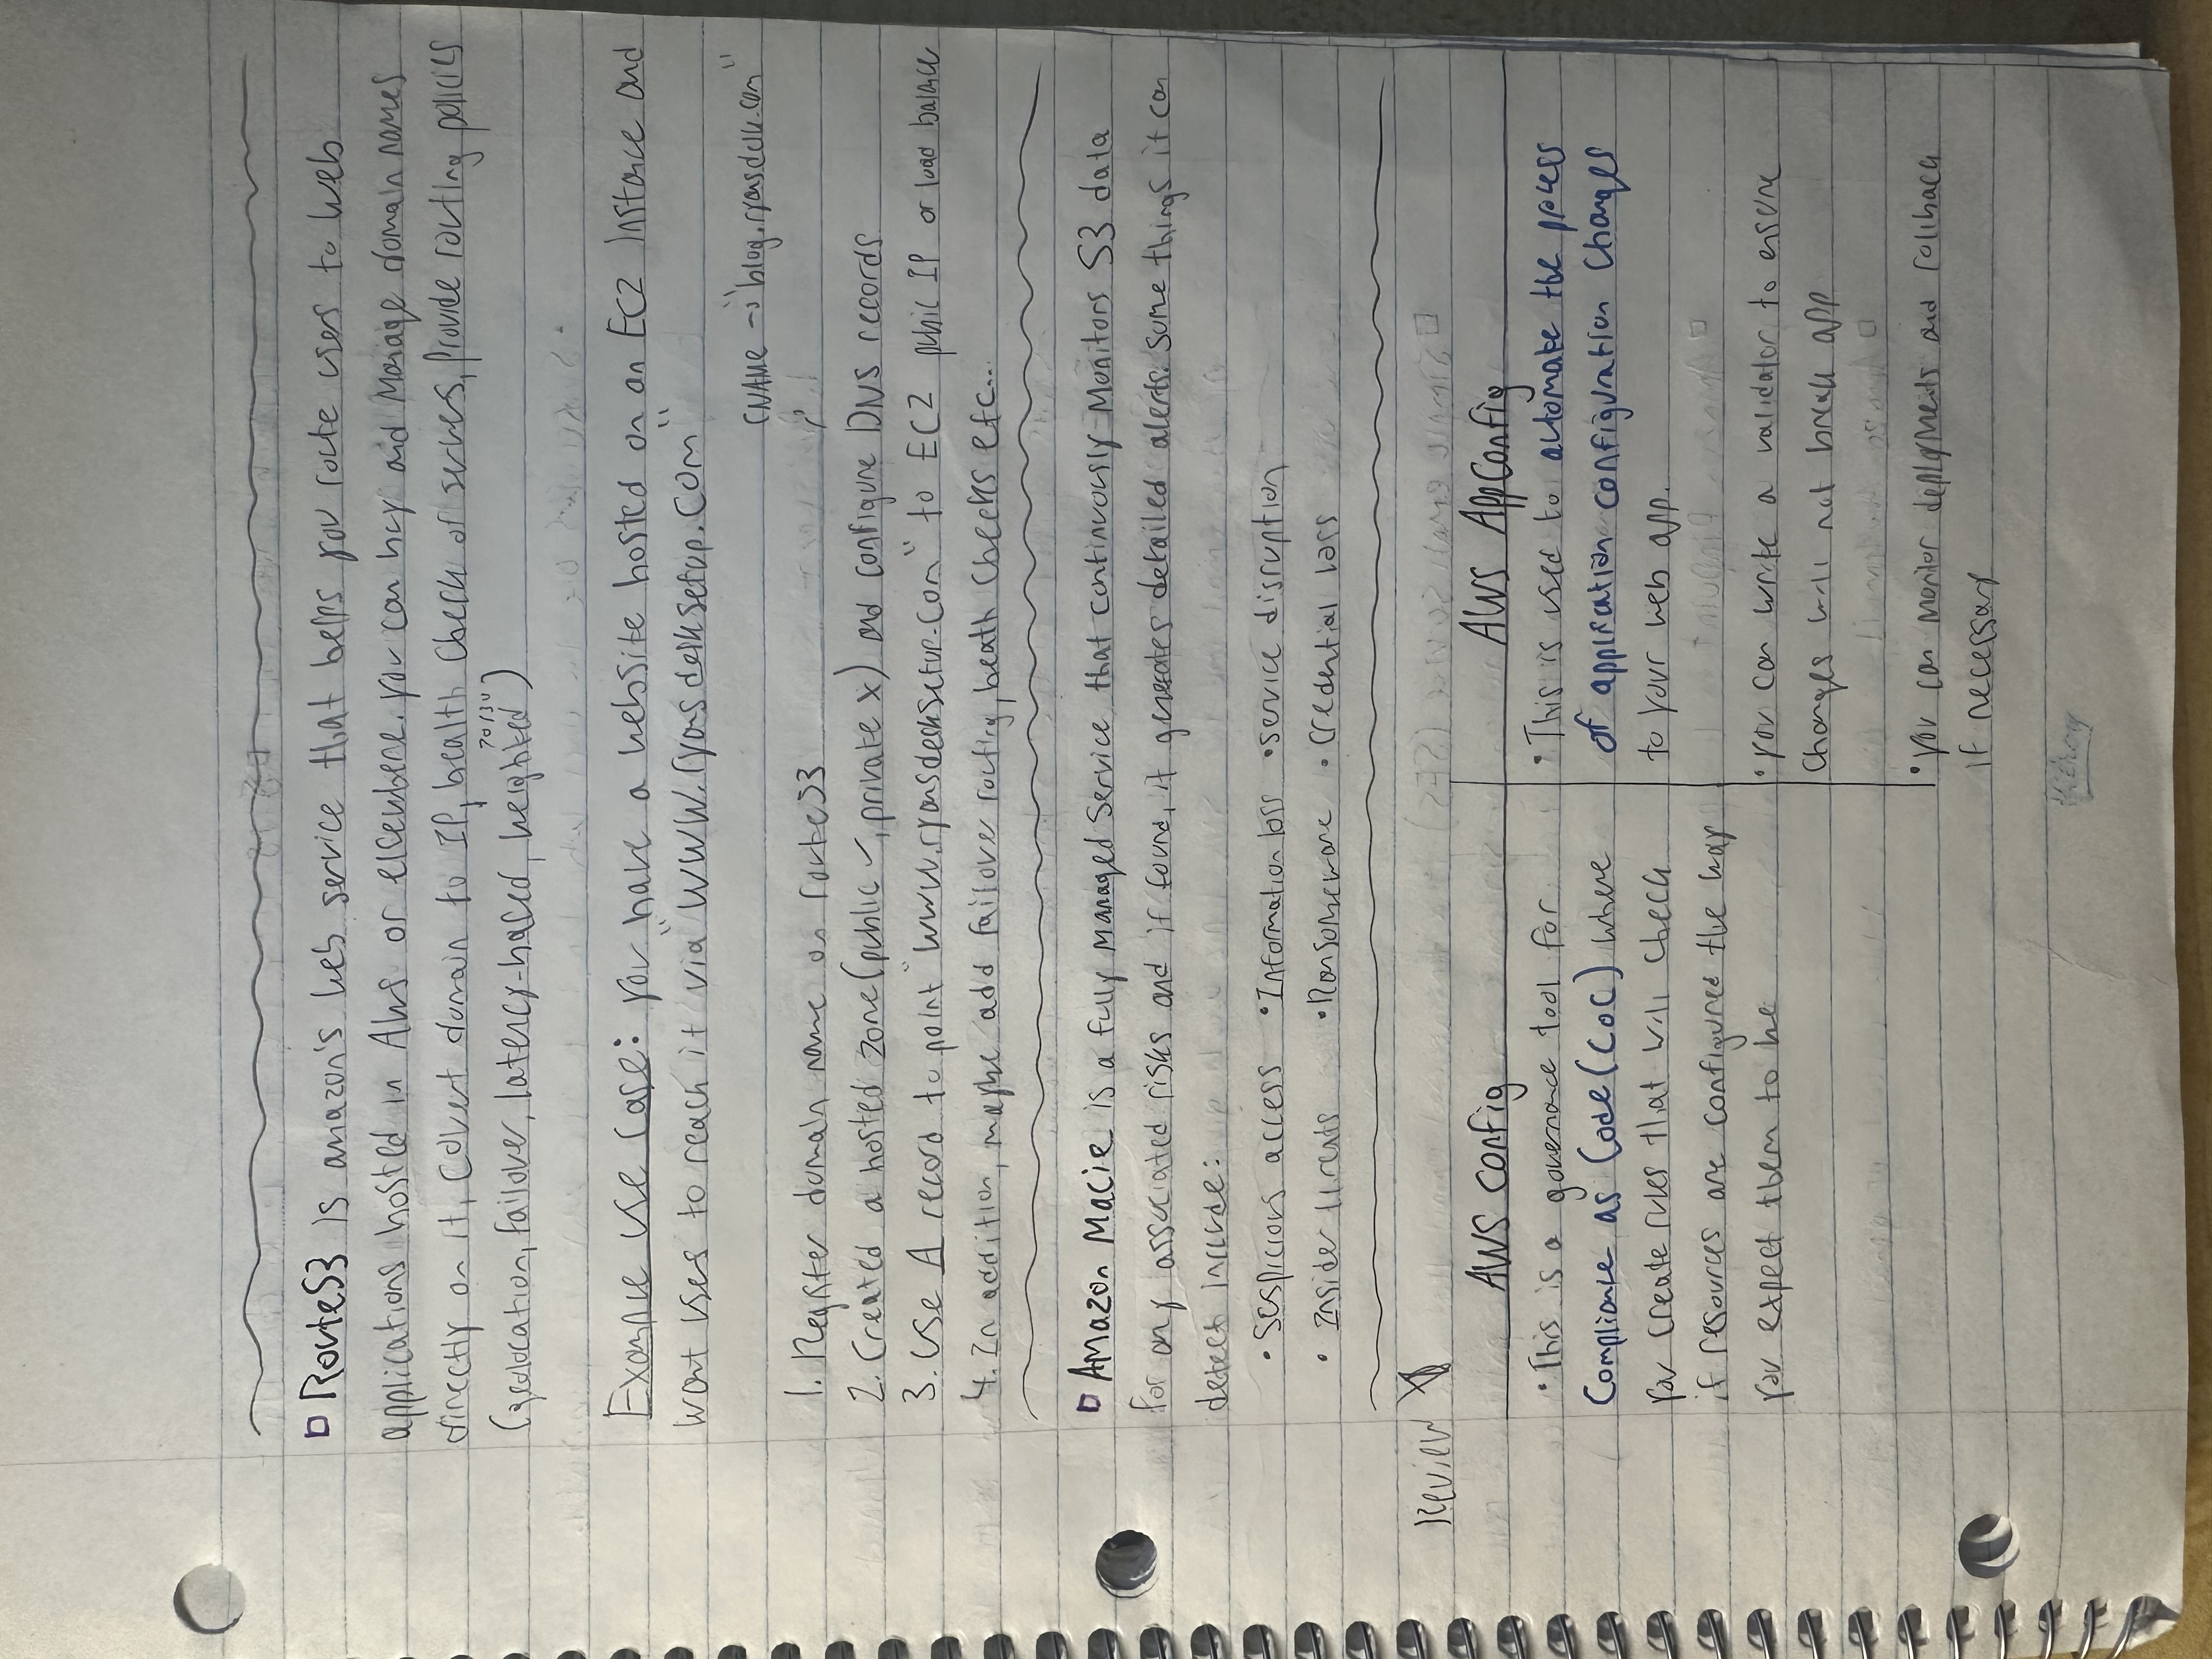 Route53 is amazon's web service that helps you route users to web
applications hosted in Aws or elsewhere. you can buy and Manage domain names
directly on it, Covert domain to IP, health Check of servers, Provide routing policies
70/30
(geolocation, failover, latency-based, weighted)
Example Use Case: you have a website hosted on an EC2 Instance and
want uses to reach it via "WWW.ryansdesksetup.Com"
CNAME -> "blog.ryansdesk.com"
1. Register domain name on route53
2. Created a hosted zone (public ✓, private x) and configure DNS records
3. Use A record to point "www.ryansdesksetup.com" to EC2 public IP or load balance
4. In addition, maybe add failover routing, heath Checks etc...
Amazon Macie is a fully managed Service that continuously Monitors S3 data
for any associated risks and if found, it generates detailed alerts. Some things it can
detect include:
• Suspicious access • Information loss • service disruption
• Insider threats • Ransomeware • Credential loss
Review
AWS Config AWS AppConfig
• This is a governance tool for
Compliance as Code (CoC) where
you create rules that will check
if resources are configured the way
you expect them to be
• This is used to automate the process
of application configuration Changes
to your web app.
• you can write a validator to ensure
Changes will not break app
• you can monitor deployments and rollback
if necessary